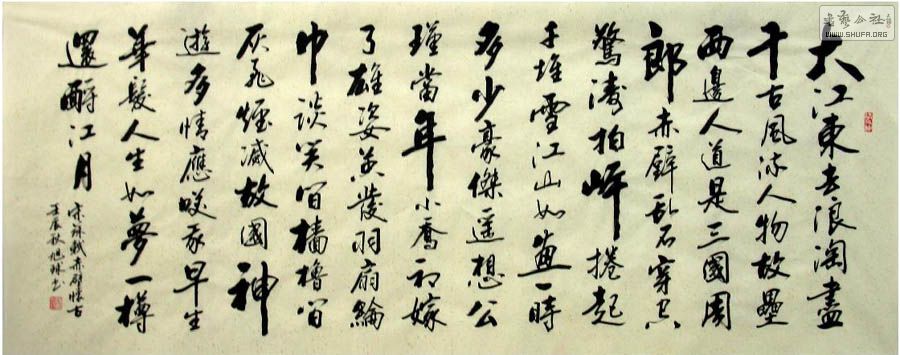 大江東去浪淘盡
千古風流人物故壘
西邊人道是三國周
郎赤壁乱石穿空
驚濤拍岸捲起
千堆雪江山如畫一時
多少豪傑遥想公
瑾當年小喬初嫁
了雄姿英發羽扇綸
巾談笑间檣櫓间
灰飛煙滅故國神
遊多情應笑我早生
華髮人生如夢一樽
還酹江月
宋蘇軾赤壁懷古
壬辰秋旭琳书
書藝公社
WWW.SHUFA.ORG